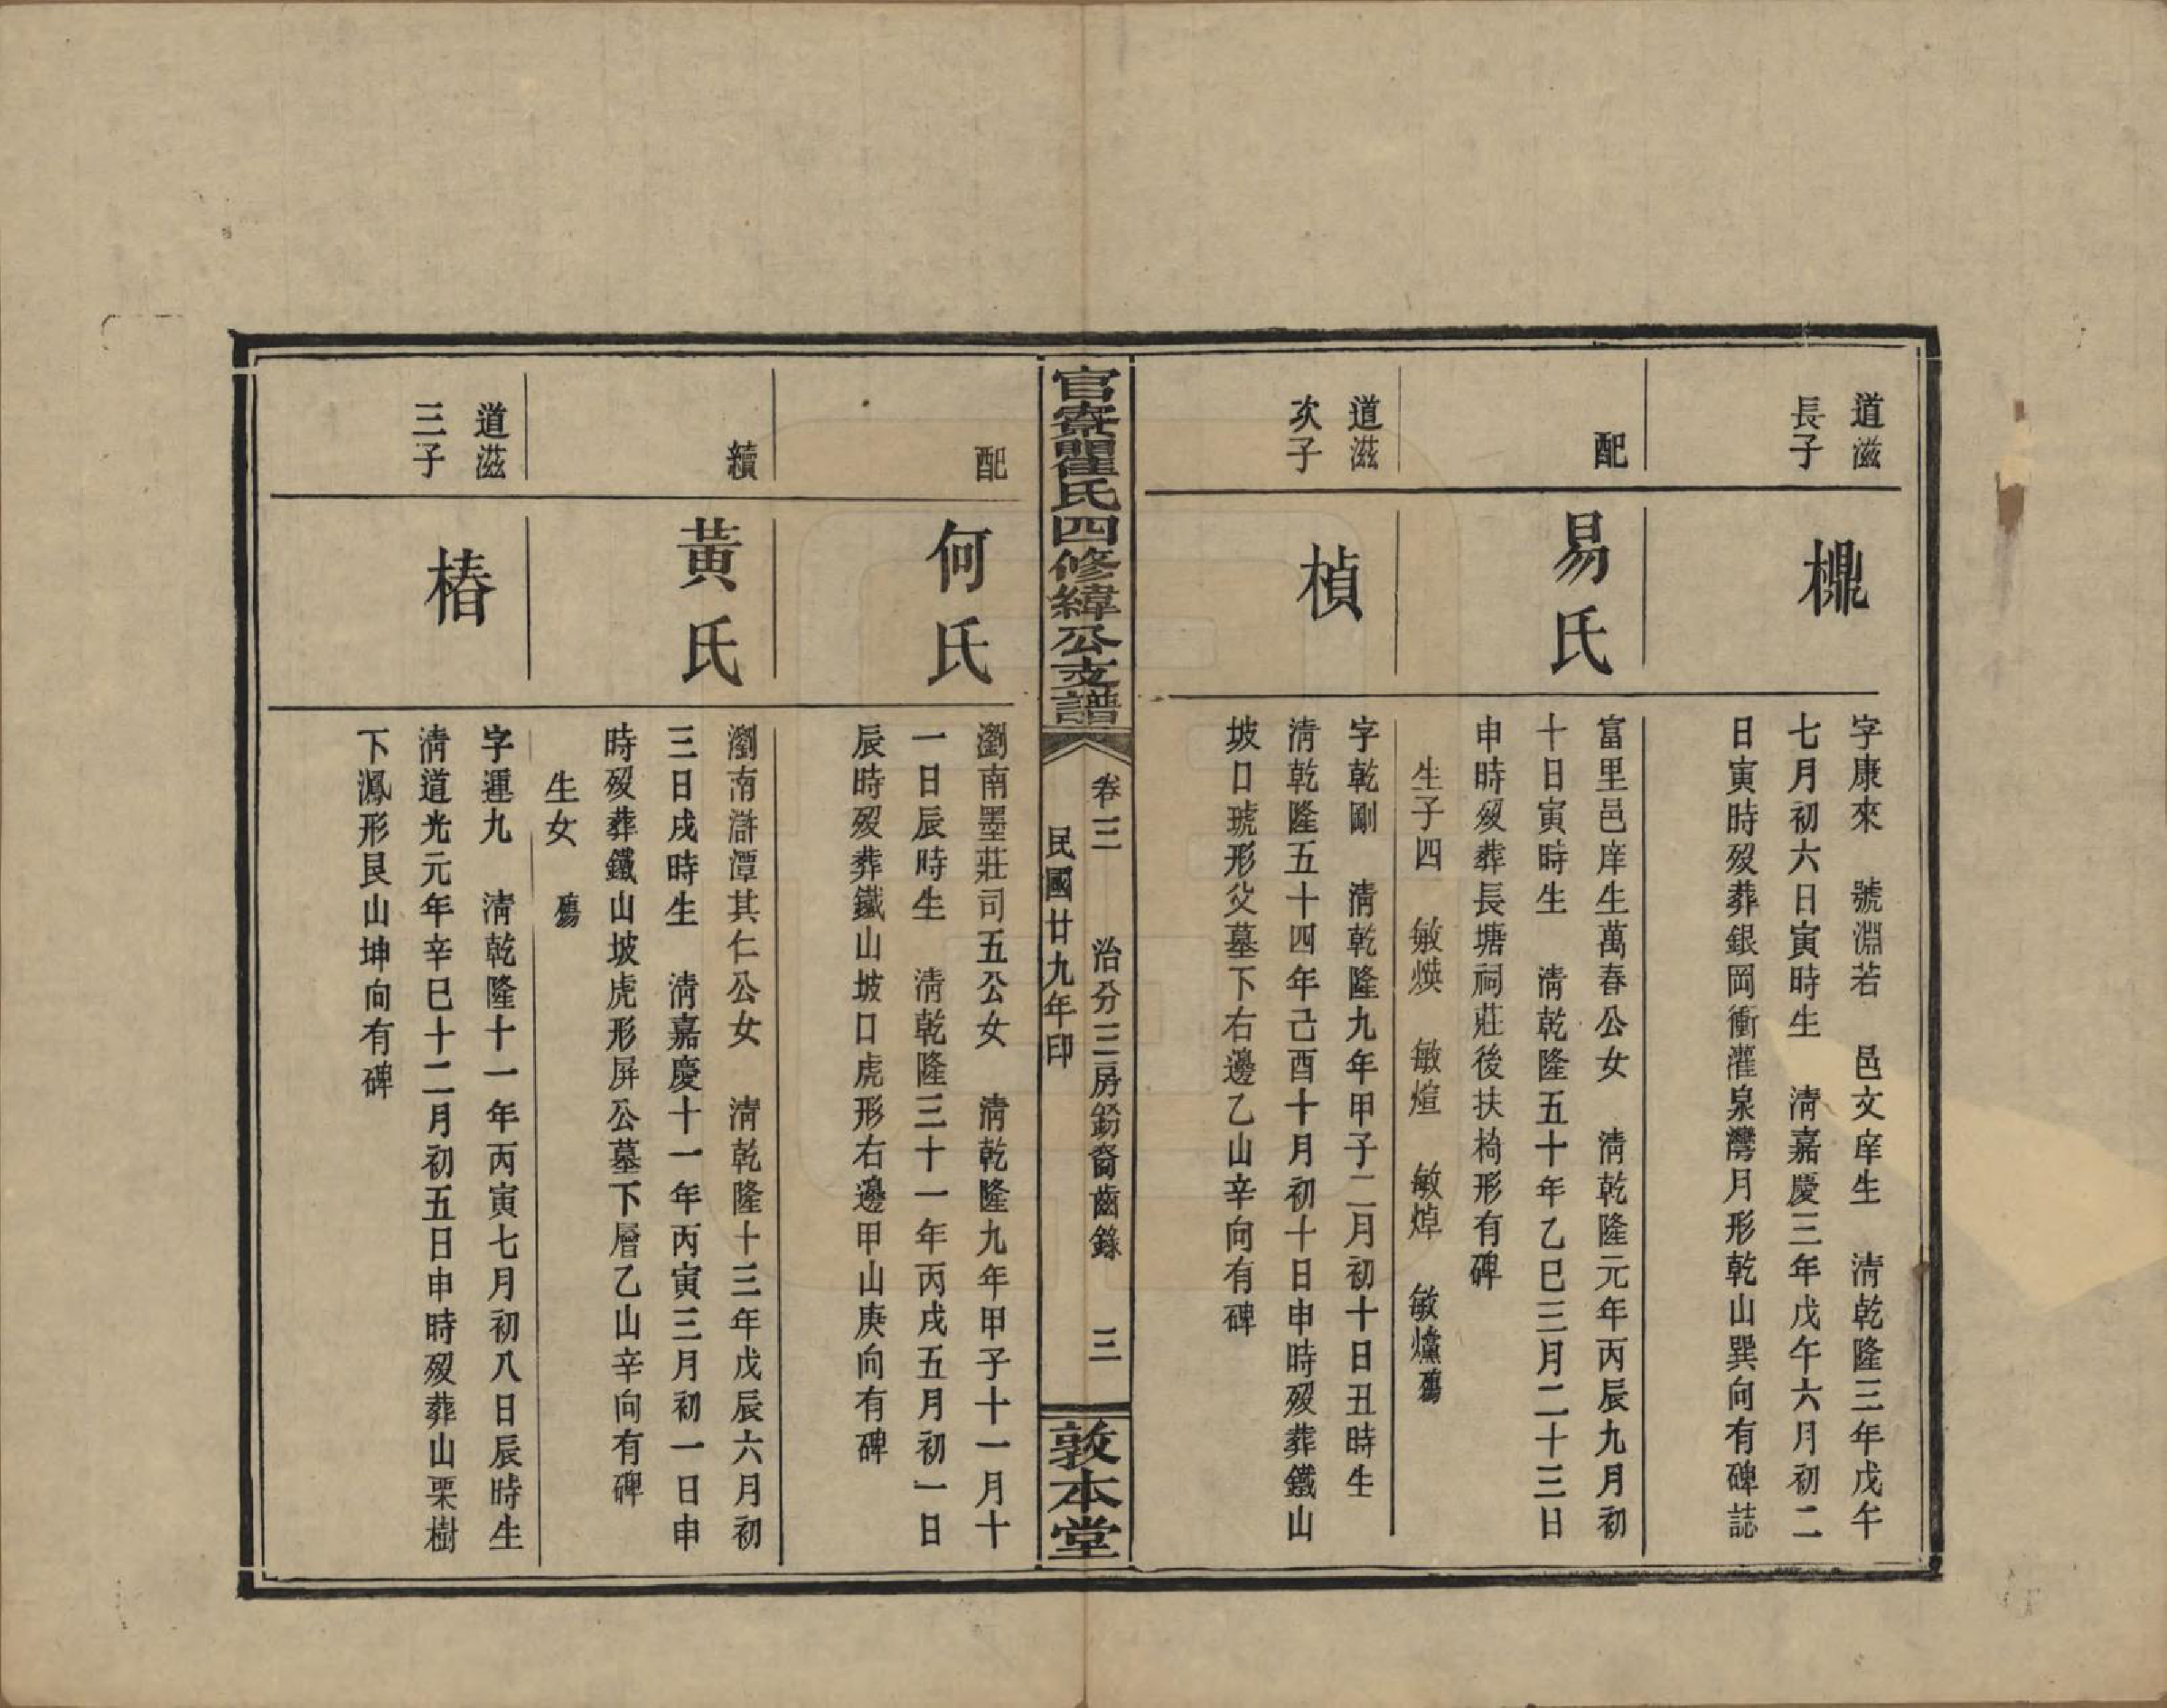 道滋
長子
㮡
字康來　號淵若　邑文庠生　清乾隆三年戊午
七月初六日寅時生　清嘉慶三年戊午六月初二
日寅時歿葬銀岡衝灌泉灣月形乾山巽向有碑誌
配
易氏
富里邑庠生萬春公女　清乾隆元年丙辰九月初
十日寅時生　清乾隆五十年乙巳三月二十三日
申時歿葬長塘祠莊後扶椅形有碑
生子四　敏煐　敏煊　敏焯　敏爞殤
道滋
次子
楨
字乾剛　清乾隆九年甲子二月初十日丑時生
清乾隆五十四年己酉十月初十日申時歿葬鐵山
坡口琥形父墓下右邊乙山辛向有碑
官寮瞿氏四修緯公支譜
卷三　治分三房釖裔齒錄　三
民國廿九年印
敦本堂
配
何氏
瀏南墨莊司五公女　清乾隆九年甲子十一月十
一日辰時生　清乾隆三十一年丙戌五月初一日
辰時歿葬鐵山坡口虎形右邊甲山庚向有碑
續
黃氏
瀏南滸潭其仁公女　清乾隆十三年戊辰六月初
三日戌時生　清嘉慶十一年丙寅三月初一日申
時歿葬鐵山坡虎形屏公墓下層乙山辛向有碑
生女　殤
道滋
三子
椿
字運九　清乾隆十一年丙寅七月初八日辰時生
清道光元年辛巳十二月初五日申時歿葬山栗樹
下鳳形艮山坤向有碑